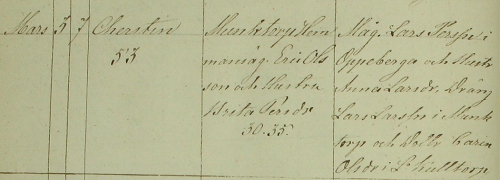 Mars 5 7 Chersten
53
Munktorp Hem
mansäg. Eric Ols
son och Hustru
Brita Persdr
30-35.
Mäg. Lars Persson i
Oppeberga och Hustr
Anna Larsdr, Dräng
Lars Larsson i Munk
torp och Dottr Carin
Olsdr i